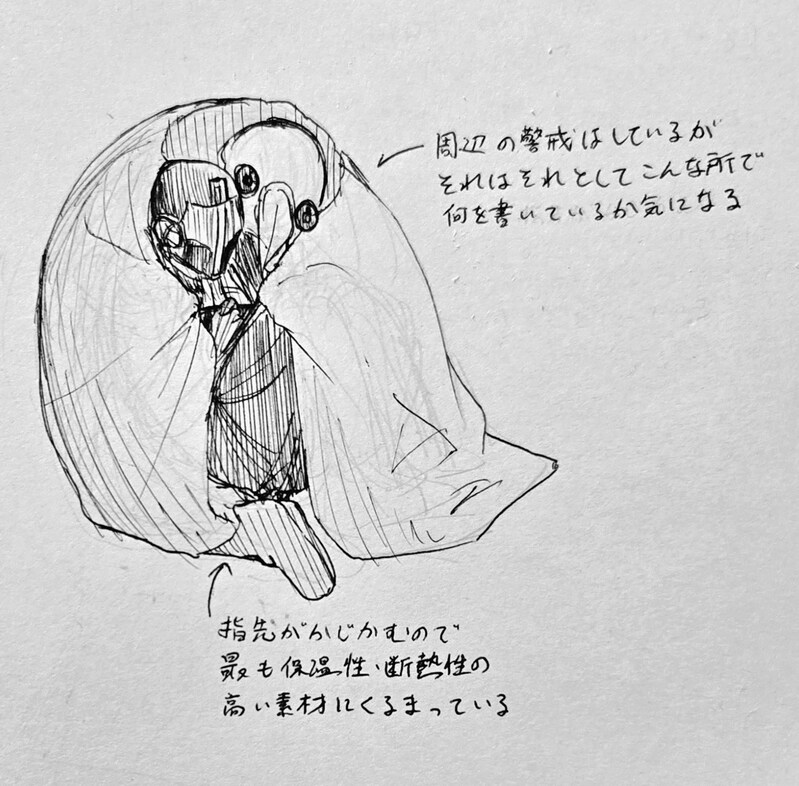 周辺の警戒はしているが
それはそれとしてこんな所で
何を書いているか気になる
指先がかじかむので
最も保温性・断熱性の
高い素材にくるまっている